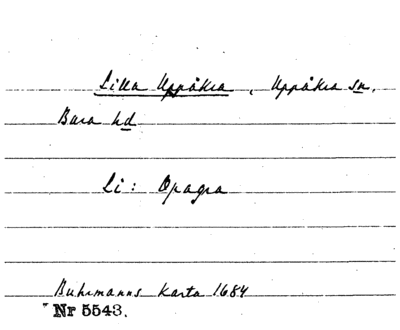 Lilla Uppåkra, Uppåkra sn.
Bara hd
Li: Opagra
Buhrmanns karta 1684
Nr 5543.